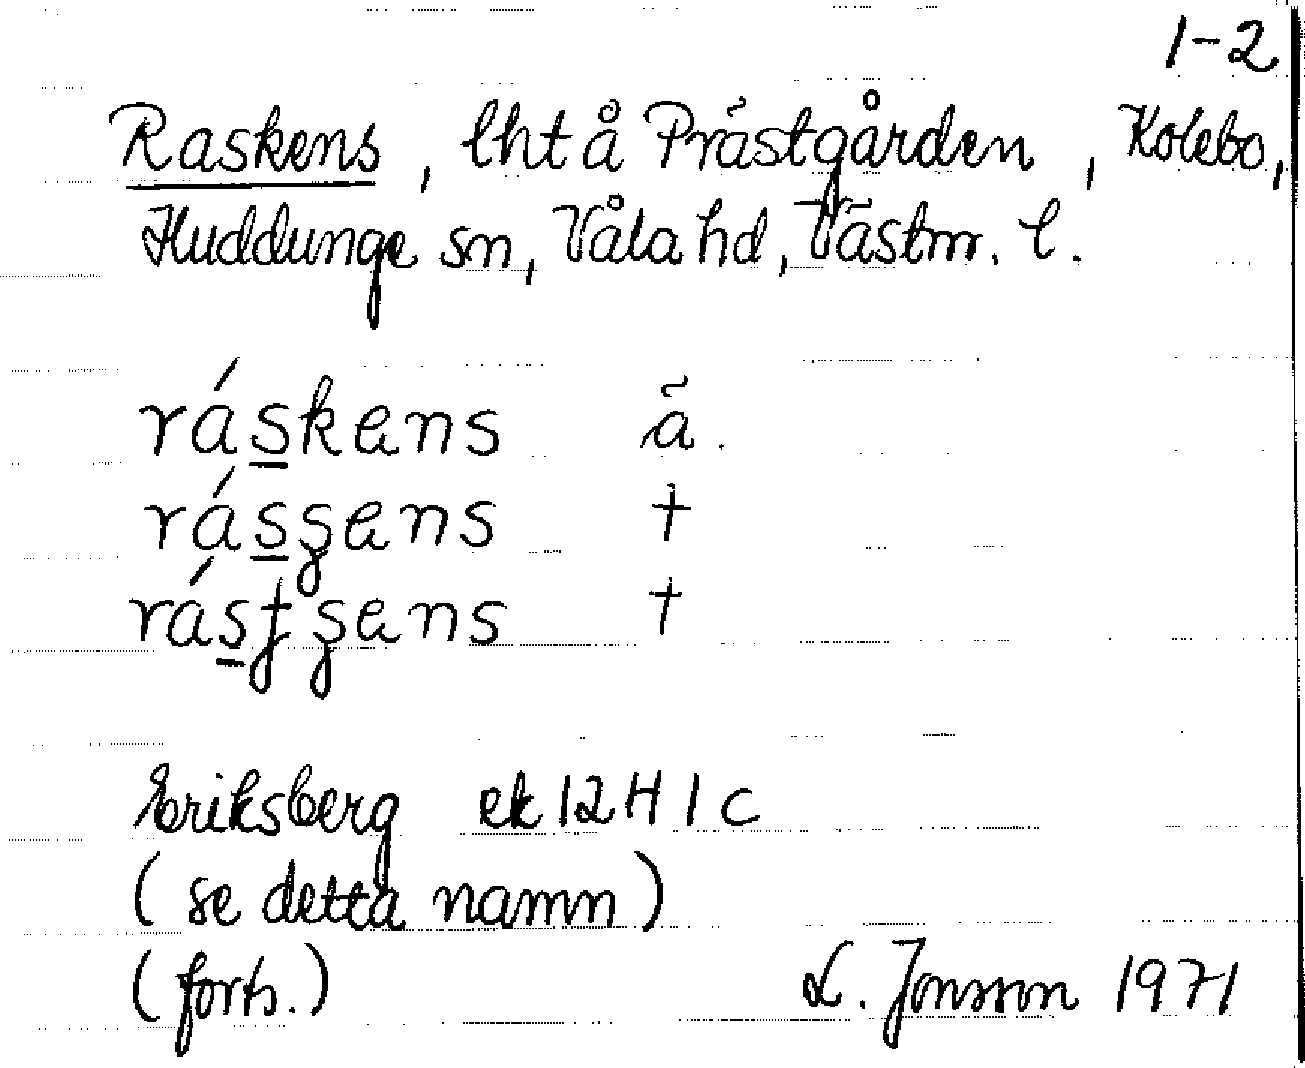 1-2
Raskens, lht å Prästgården, Kolebo,
Huddunge sn, Våla hd, Västm. l.
ráskens ä.
rássens †
rástsens †
Eriksberg ek 12 H 1 c
(se detta namn)
(forts.) L. Jonsson 1971